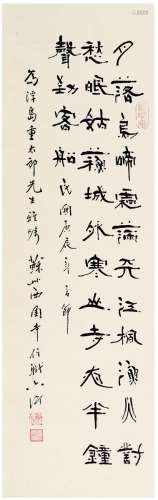 月落烏啼霜滿天江楓漁火對
愁眠姑蘇城外寒山寺夜半鐘
聲到客船 民國庚辰節
為浮島重太郎先生雅囑 蘇州西園寺住職六